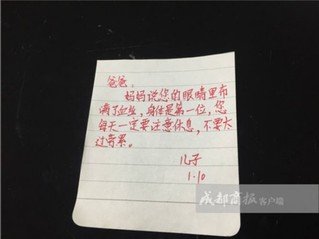 爸爸:
妈妈说您的眼睛里布
满了血丝,身体是第一位,您
每天一定要注意休息,不要太
过劳累。
儿子
1.10
成都商报客户端